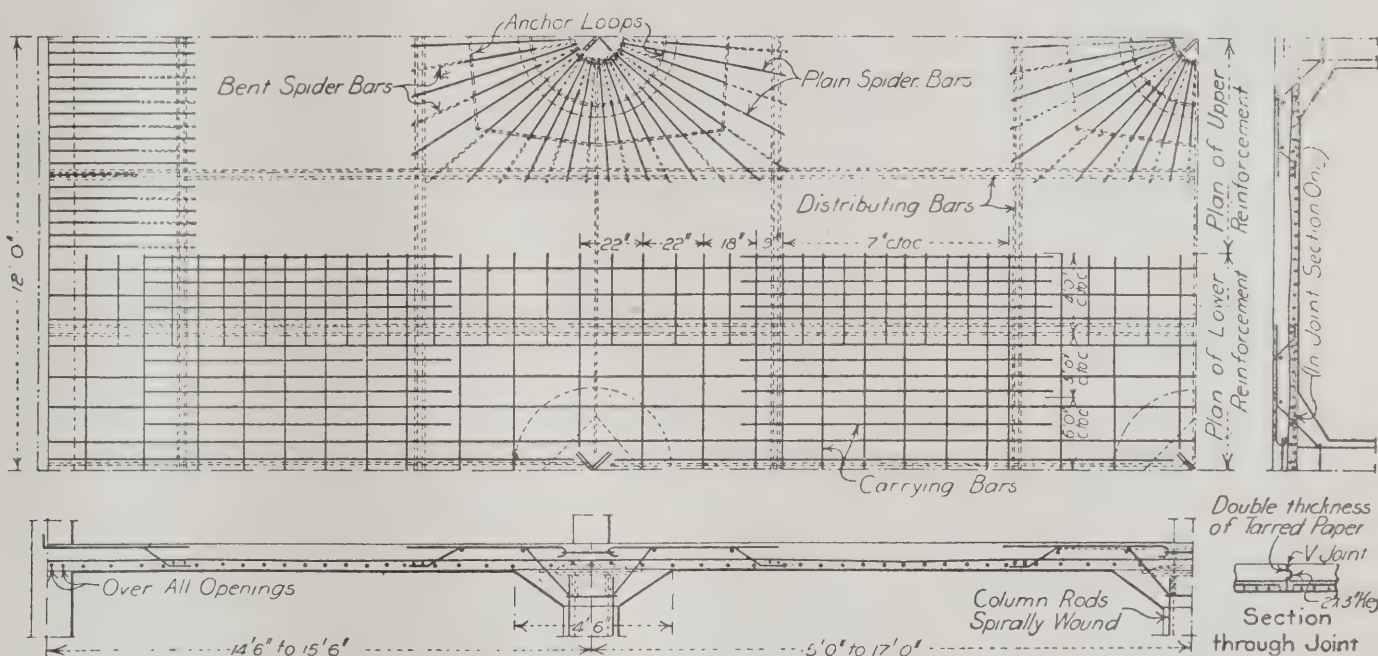 Anchor Loops
Bent Spider Bars
Plain Spider Bars
Distributing Bars
12' 0"
22"
22"
18"
9"
7" ctoc
4'0" ctoc
3'0" ctoc
6'0" ctoc
Plan of Upper
Reinforcement
Plan of Lower
Reinforcement
(In Joint Section On.)
Carrying Bars
Over All Openings
4'6"
14'6" to 15'6"
5'0" to 17'0"
Column Rods
Spirally Wound
Double thickness
of Tarred Paper
V Joint
2"x3" Key
Section
through Joint